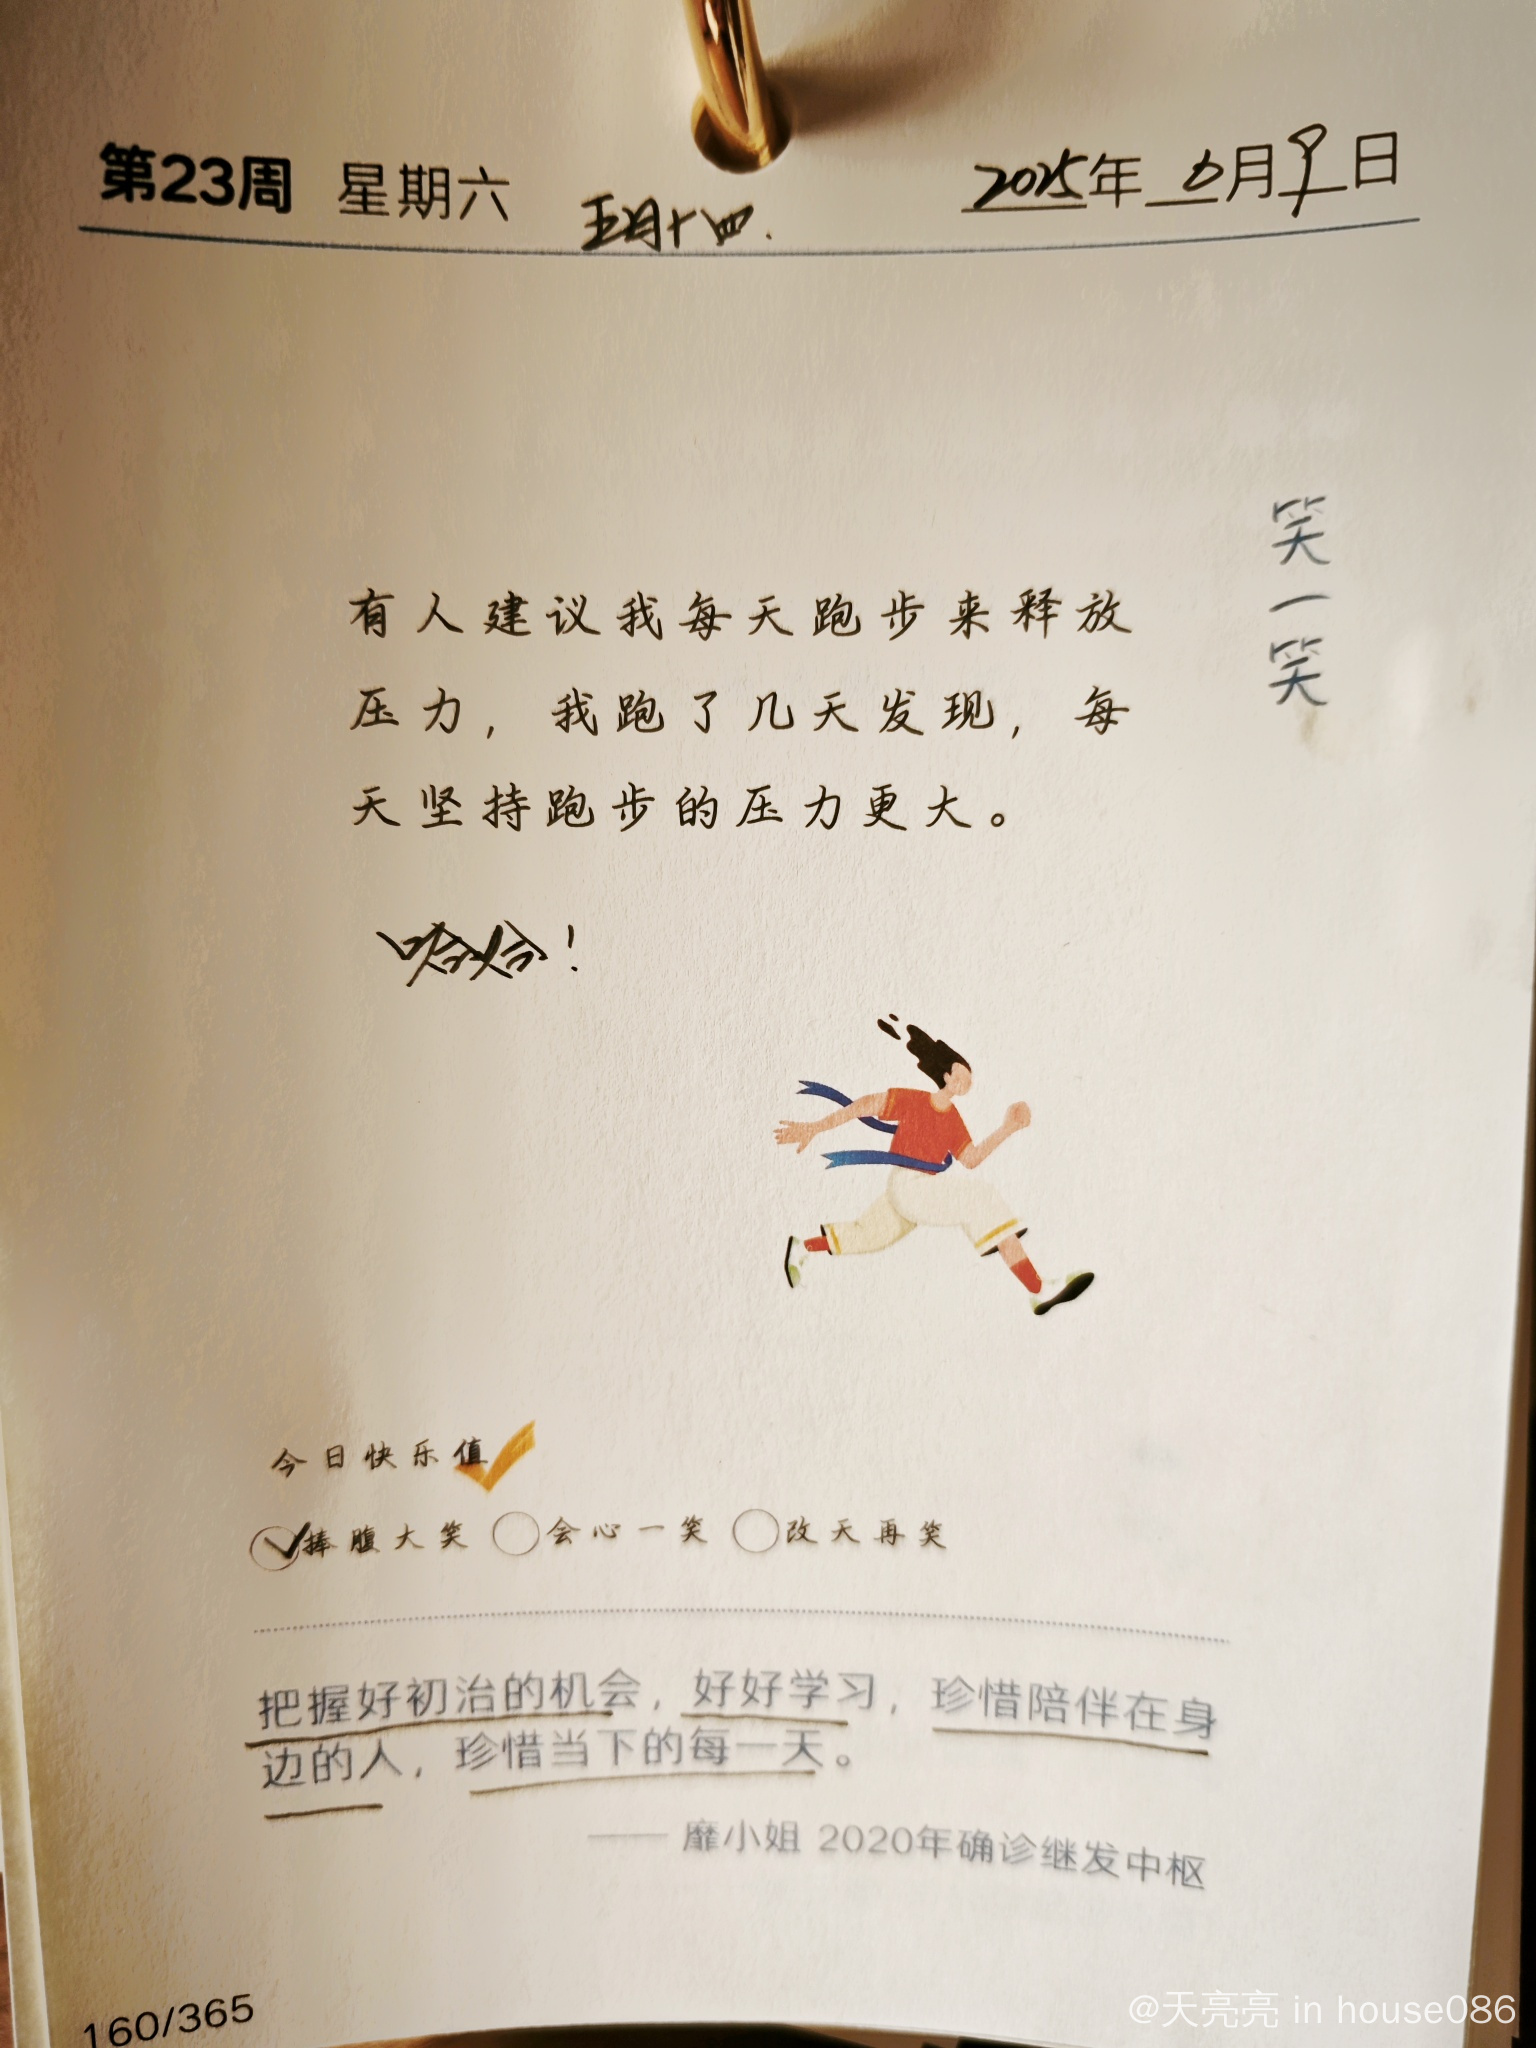 第23周 星期六 五月十四. 2025年 6月9日
笑一笑
有人建议我每天跑步来释放
压力，我跑了几天发现，每
天坚持跑步的压力更大。
哈哈！
今日快乐值
捧腹大笑 会心一笑 改天再笑
把握好初治的机会，好好学习，珍惜陪伴在身
边的人，珍惜当下的每一天。
—— 靡小姐 2020年确诊继发中枢
160/365
@天亮亮 in house086